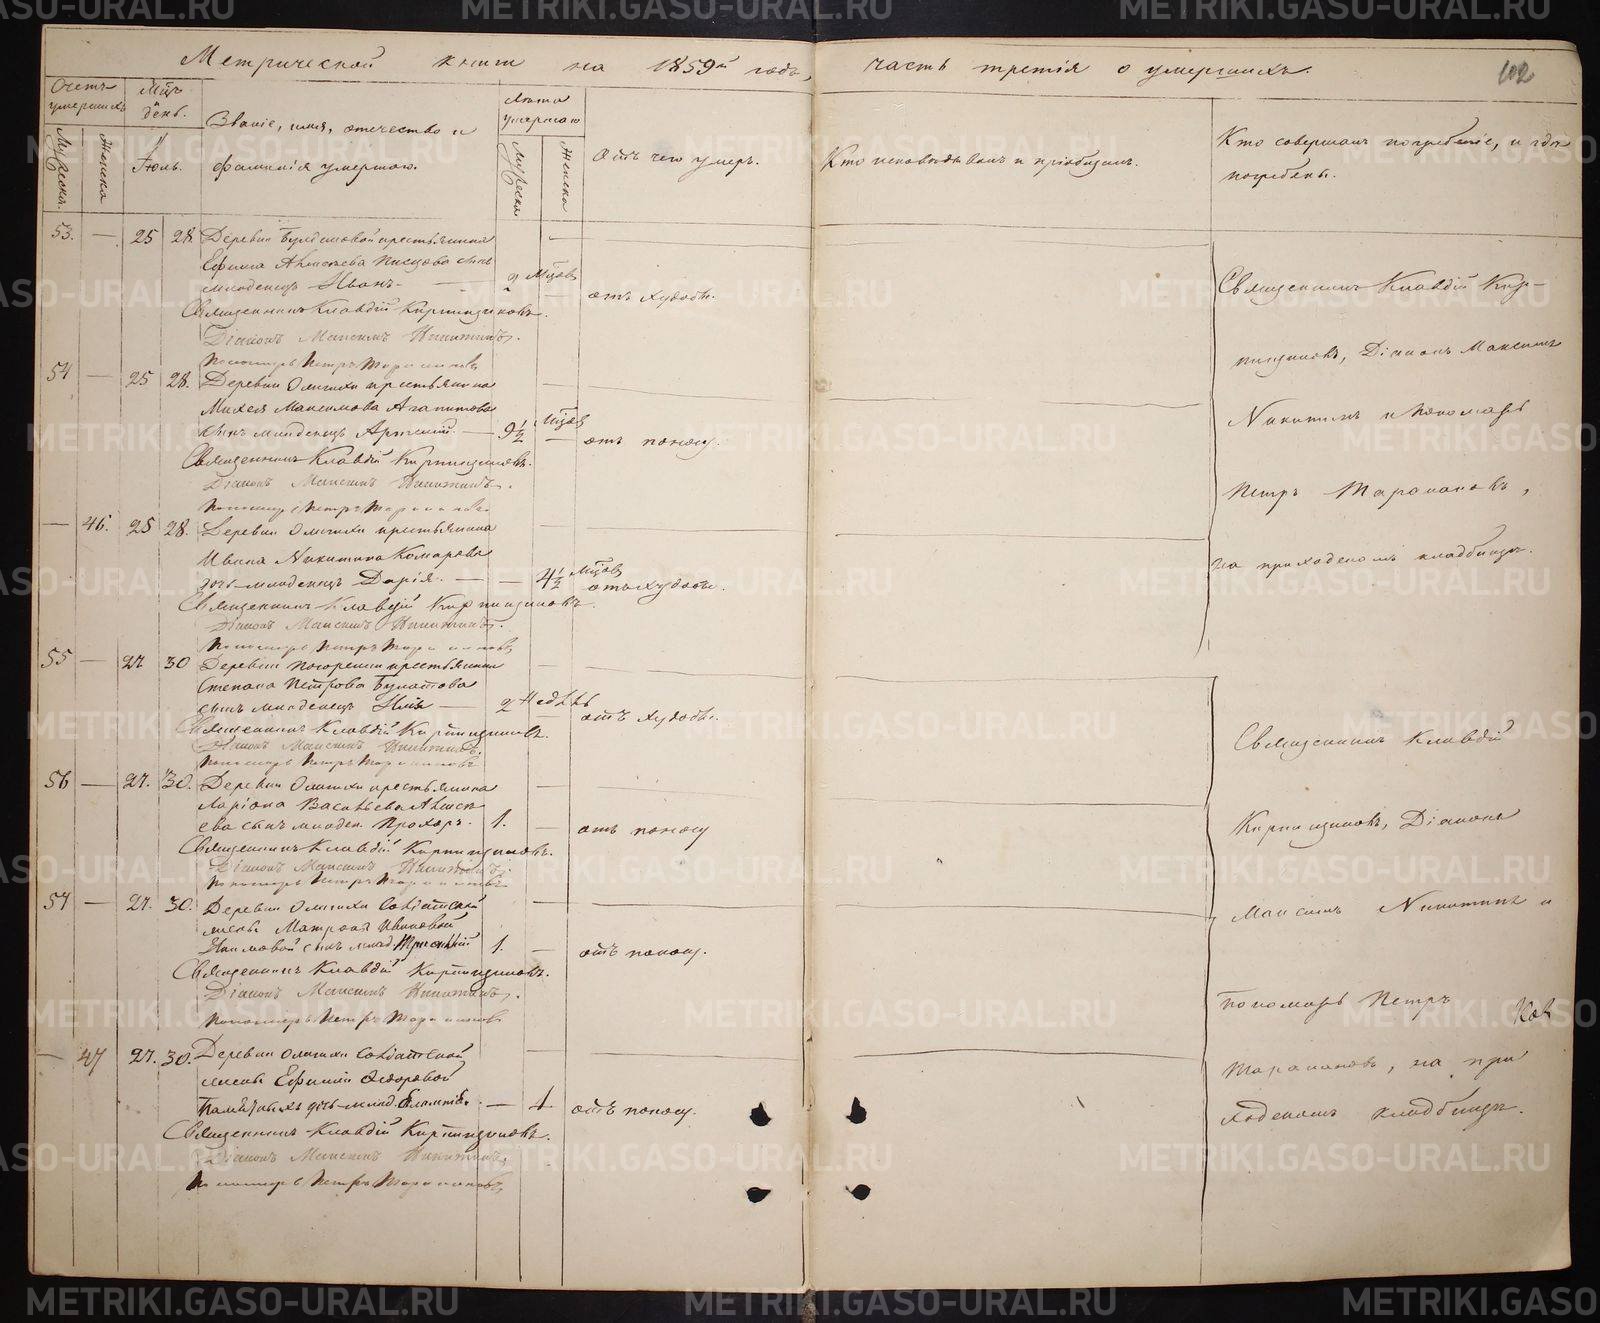 Метрической книги на 1859й годъ, часть третія о умершихъ.
102
Счетъ умершихъ
Мужеска.
Женска
Мцъ и день.
Іюль.
Званіе, имя, отечество и
фамилія умершаго.
Лѣта умершаго
Мужеска
Женска
Отъ чего умеръ.
Кто исповѣдывалъ и пріобщалъ.
Кто совершалъ погребеніе, и гдѣ
погребены.
53. — 25 28. Деревни крестьянина
Ефима Алексѣева Писцова сынъ
младенецъ Иванъ — 2 Мѣсяц — отъ худобы.
Священникъ Клавдій Кирпищиковъ.
Діаконъ Максимъ Никитинъ.
Пономарь Петръ Таракановъ
54 — 25 28. Деревни Олюхи крестьянина
Михея Максимова Агапитова
сынъ младенецъ Артемій. — 9½ Мѣсяц — отъ поносу.
Священникъ Клавдій Кирпищиковъ.
Діаконъ Максимъ Никитинъ.
Пономарь Петръ Таракановъ
— 46. 25 28. Деревни крестьянина
Ивана Никитина Комарова
дочь младенецъ Дарія. — — 4½ Мѣсяц отъ худобы.
Священникъ Клавдій Кирпищиковъ.
Діаконъ Максимъ Никитинъ.
Пономарь Петръ Таракановъ
55 — 27 30 Деревни Погорѣлки крестьянина
Степана Петрова Булатова
сынъ младенецъ Илія — 2 недѣль — отъ худобы.
Священникъ Клавдій Кирпищиковъ.
Діаконъ Максимъ Никитинъ.
Пономарь Петръ Таракановъ
56 — 27. 30. Деревни крестьянина
Ларіона Васильева Алексѣ
ева сынъ младен. Прохоръ. 1. — отъ поносу
Священникъ Клавдій Кирпищиковъ.
Діаконъ Максимъ Никитинъ.
Пономарь Петръ Таракановъ
57 — 27. 30. Деревни Солдатской
жены Матроны Ивановой
сынъ млад. 1. — отъ поносу.
Священникъ Клавдій Кирпищиковъ.
Діаконъ Максимъ Никитинъ.
Пономарь Петръ Таракановъ
— 47 27. 30. Деревни Солдатской
жены Ефиміи Ѳедоровой
дочь млад. — 4 отъ поносу.
Священникъ Клавдій Кирпищиковъ.
Діаконъ Максимъ Никитинъ.
Пономарь Петръ Таракановъ
Священникъ Клавдій Кир-
пищиковъ, Діаконъ Максимъ
Никитинъ и Пономарь
Петръ Таракановъ,
на приходскомъ кладбищѣ.
Священникъ Клавдій
Кирпищиковъ, Діаконъ
Максимъ Никитинъ и
пономарь Петръ
Таракановъ, на при
ходскомъ кладбищѣ.
METRIKI.GASO-URAL.RU